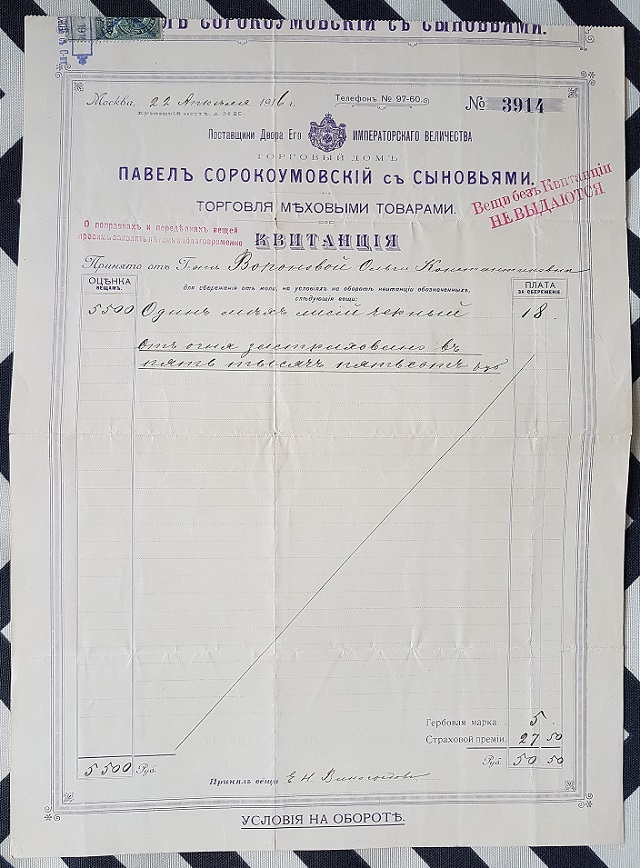 СОРОКОУМОВСКІЙ съ СЫНОВЬЯМИ.
Москва, 22 Апреля 1916 г.
Телефонъ № 97-60.
№ 3914
Поставщики Двора Его ИМПЕРАТОРСКАГО ВЕЛИЧЕСТВА
ТОРГОВЫЙ ДОМЪ
ПАВЕЛЪ СОРОКОУМОВСКІЙ съ СЫНОВЬЯМИ.
ТОРГОВЛЯ МѢХОВЫМИ ТОВАРАМИ.
Вещи безъ Квитанціи
НЕВЫДАЮТСЯ
О поправкахъ и передѣлкахъ вещей
просимъ заявлять лѣтомъ заблаговременно
КВИТАНЦІЯ
Принято отъ Вороновой Ольги Константиновны
ОЦѢНКА
ВЕЩАМЪ.
для сбереженія отъ моли, на условіяхъ на оборотѣ квитанціи обозначенныхъ,
слѣдующія вещи:
ПЛАТА
ЗА СБЕРЕЖЕНІЕ.
5500 Одинъ мѣхъ лисій черный 18.
отъ огня застраховано въ
пять тысячъ пятьсотъ руб
Гербовая марка 5.
Страховой преміи. 27 50
5500 Руб. Руб. 50 50
Принялъ вещи
УСЛОВІЯ НА ОБОРОТѢ.